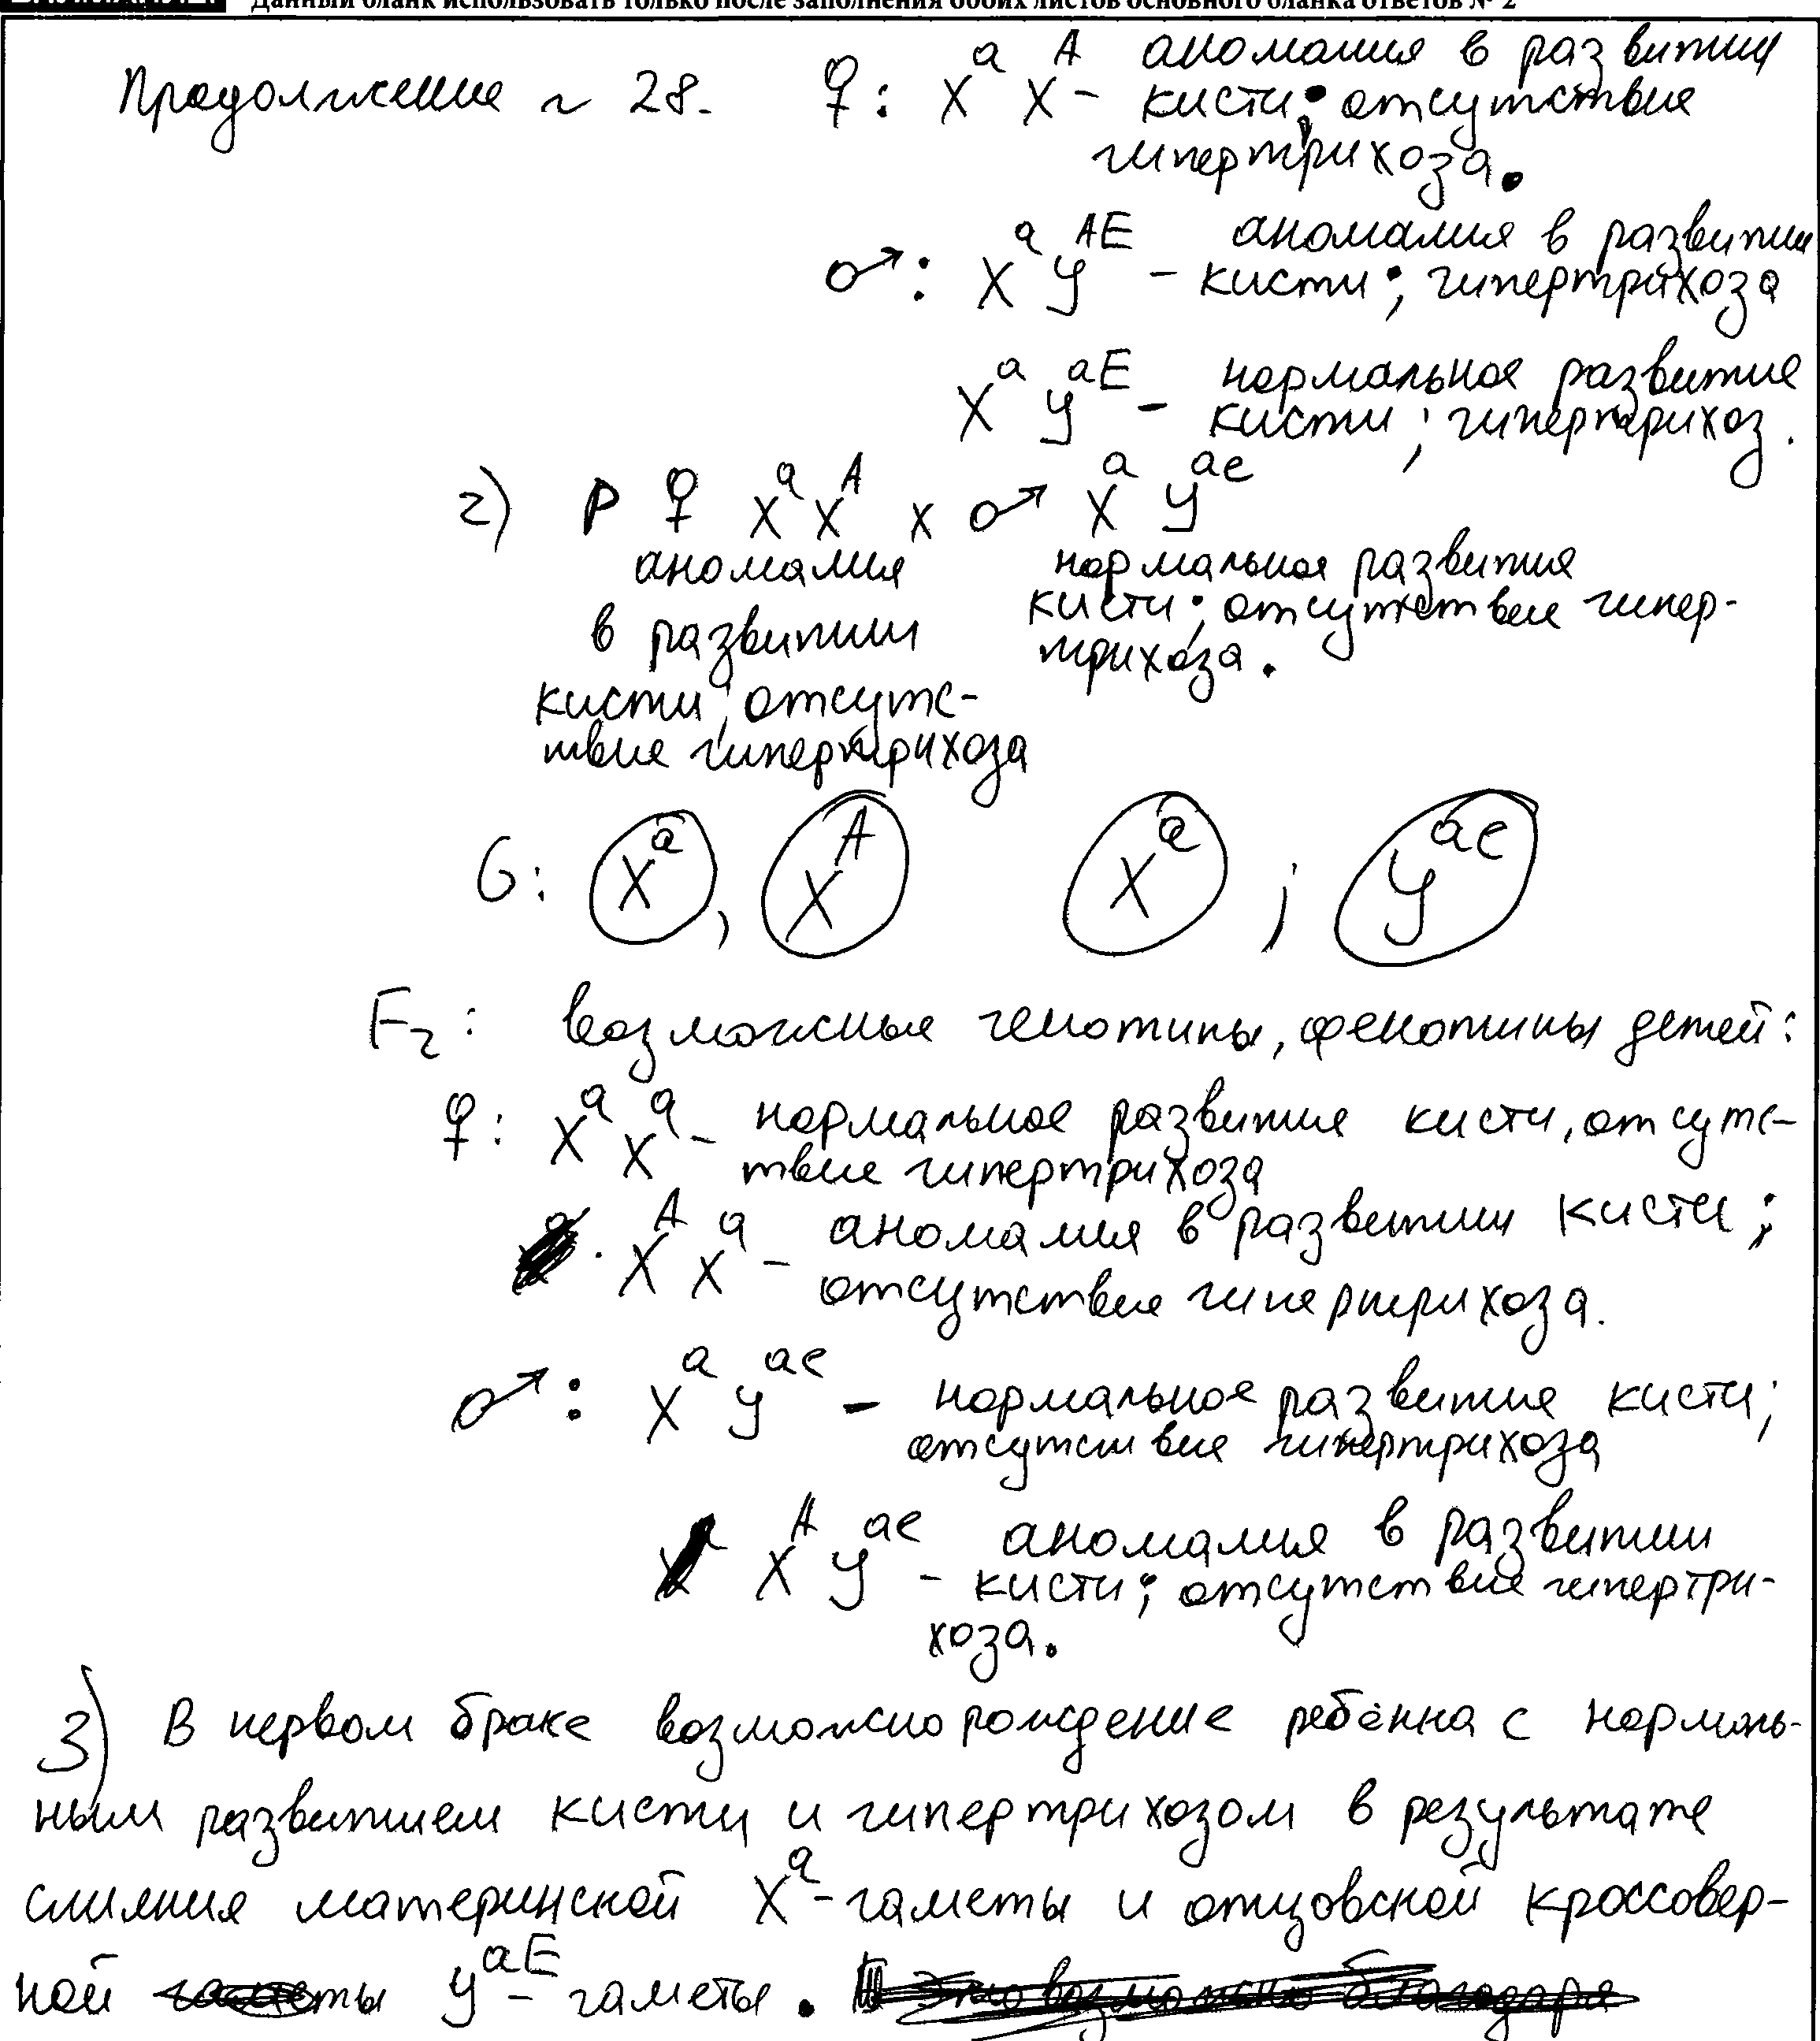 Данный бланк использовать только после заполнения обоих листов основного бланка ответов № 2
Продолжение ~ 28. ♀: XᵃXᴬ – аномалия в развитии
кисти; отсутствие
гипертрихоза.
♂: XᵃYᴬᴱ – аномалия в развитии
кисти; гипертрихоза
XᵃYᵃᴱ – нормальное развитие
кисти; гипертрихоз.
2) P ♀ XᵃXᴬ x ♂ XᵃYᵃᵉ
аномалия нормальное развития
в развитии кисти; отсутствие гипер-
кисти; отсутс- трихоза.
твие гипертрихоза
G: Xᵃ, Xᴬ Xᵃ; Yᵃᵉ
F₂: возможные генотипы, фенотипы детей:
♀: XᵃXᵃ – нормальное развитие кисти, отсутс-
твие гипертрихоза
XᴬXᵃ – аномалия в развитии кисти;
отсутствие гипертрихоза.
♂: XᵃYᵃᵉ – нормальное развитие кисти;
отсутствие гипертрихоза
XᴬYᵃᵉ – аномалия в развитии
кисти; отсутствие гипертри-
хоза.
3) В первом браке возможно рождение ребёнка с нормаль-
ным развитием кисти и гипертрихозом в результате
слияния материнской Xᵃ-гаметы и отцовской кроссовер-
ной Yᵃᴱ – гаметы.